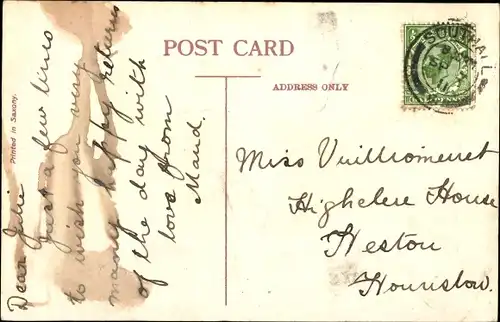 POST CARD
ADDRESS ONLY
Printed in Saxony.
Dear Julie
Just a few lines
to wish you very
many happy returns
of the day with
love from
Maud.
SOUTHALL
Miss Vuilliomenet
Highclere House
Heston
Hounslow.